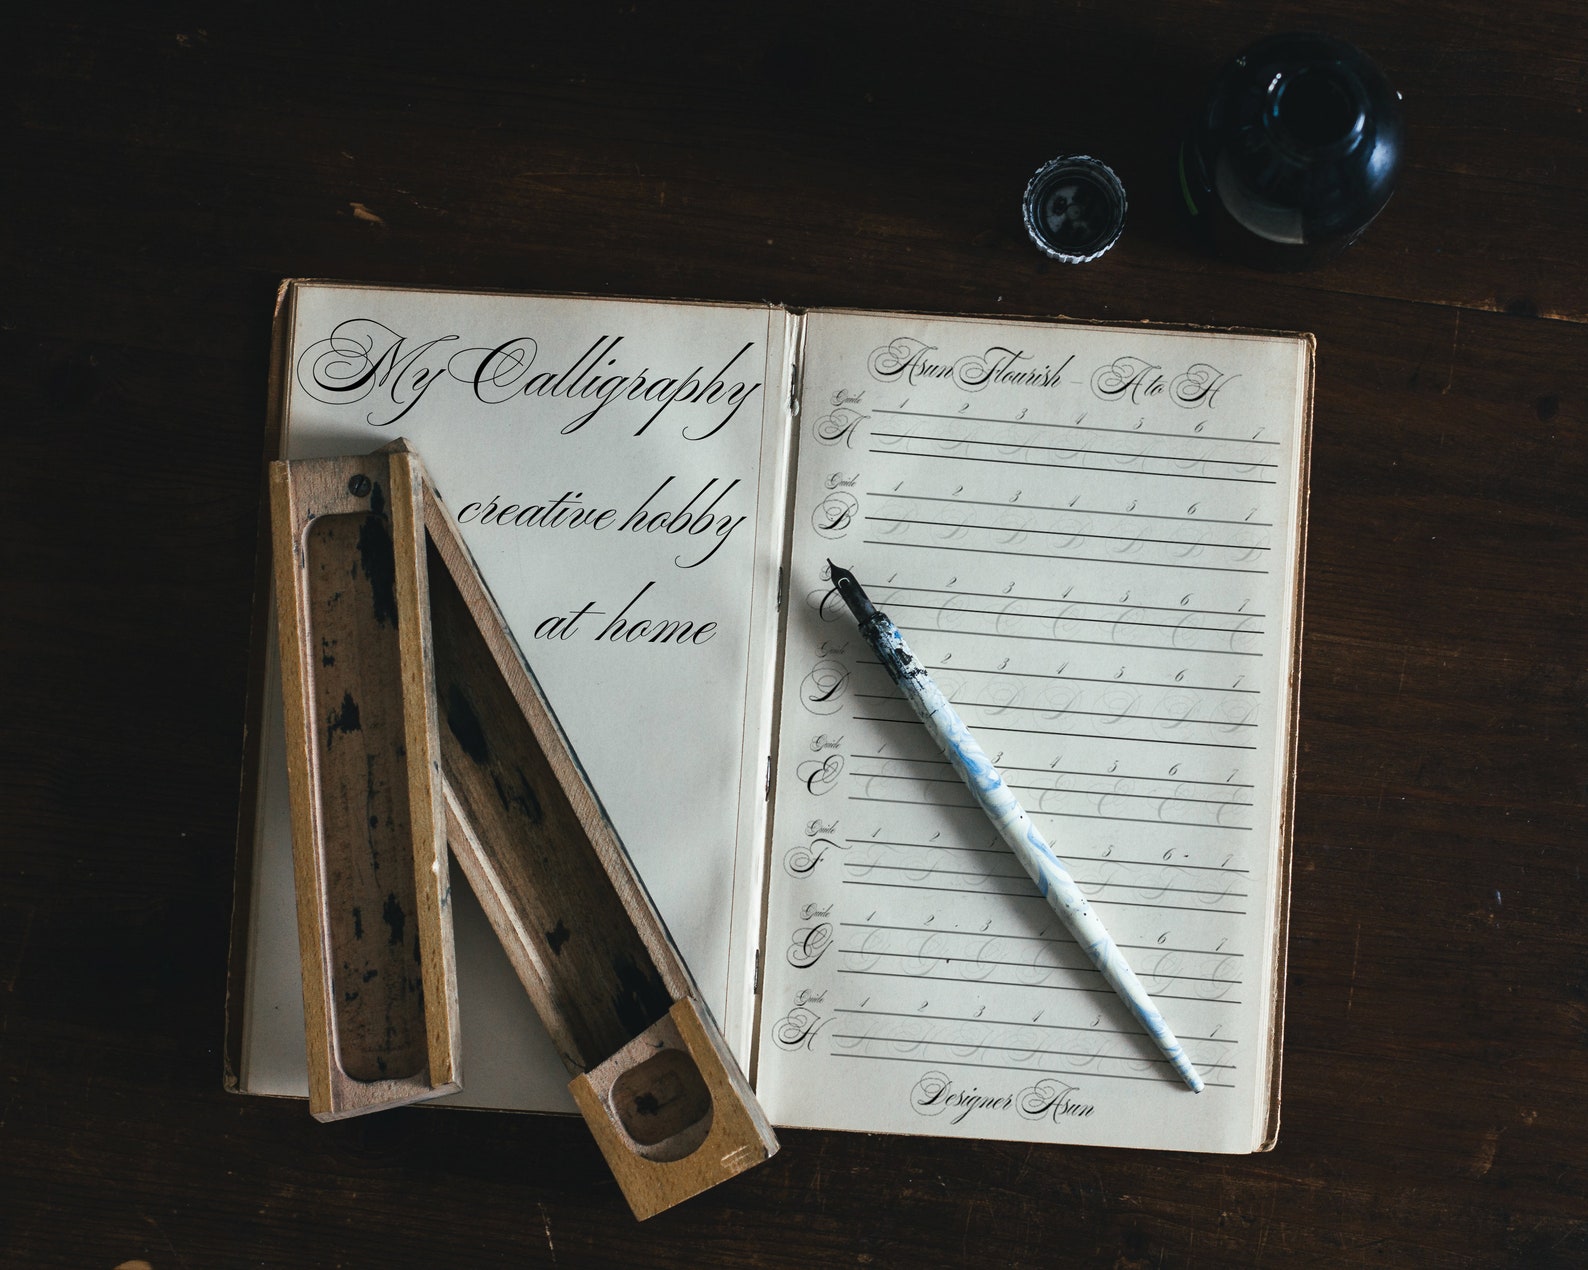 My Calligraphy
creative hobby
at home
Asun Flourish - A to H
Guide 1 2 3 4 5 6 7
A A A A A A A A
Guide 1 2 3 4 5 6 7
B B B B B B B B
1 2 3 4 5 6 7
C C C C C C C C
Guide 2 3 4 5 6 7
D D D D D D D
Guide 1 3 4 5 6 7
E E E E E E E
Guide 1 2 3 5 6 7
F F F F F F F
Guide 1 2 3 4 6 7
G G G G G G G
Guide 1 2 3 4 5 7
H H H H H H H
Designer Asun